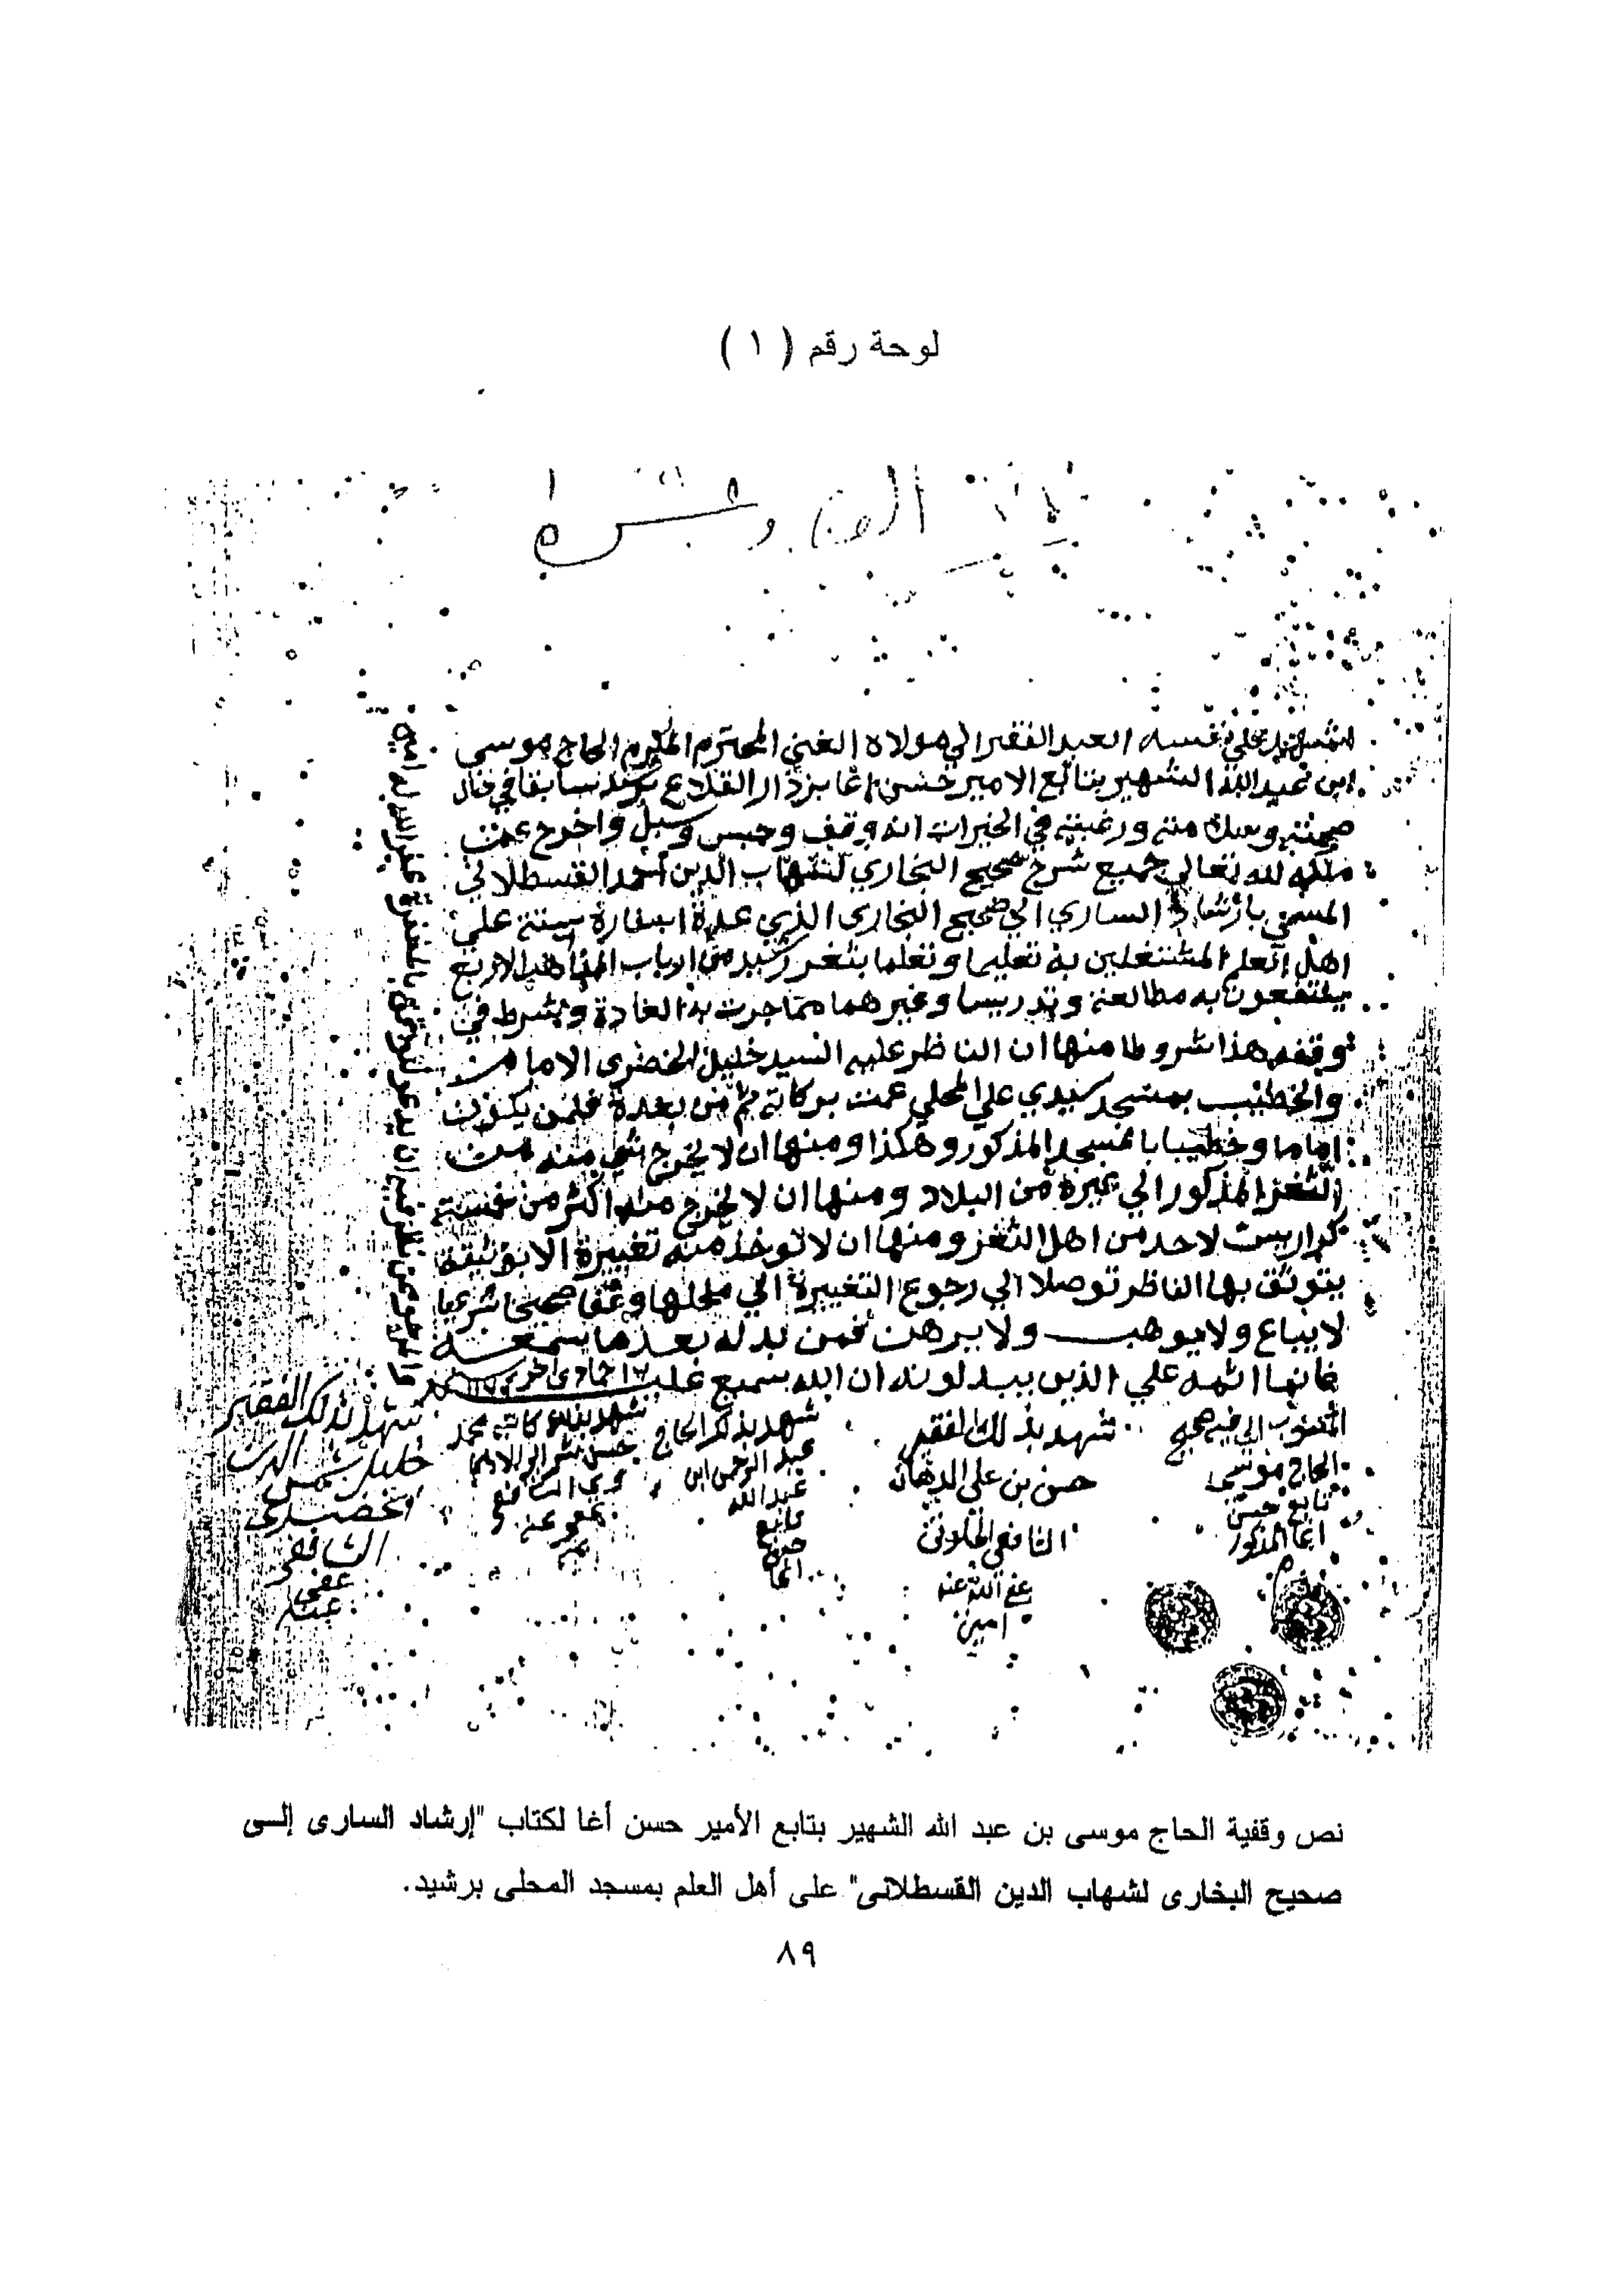 لوحة رقم ( ١ )
العبد الفقير الي مولاه الغني المحترم المكرم الحاج موسي
ابن عبد الله الشهير بتابع الامير حسن اغا بزدار القلاع برشيد سابقا في حال
صحته وسلامته ورغبته في الخيرات انه وقف وحبس وسبل واخرج عن
ملكه لله تعالي جميع شرح صحيح البخاري لشهاب الدين احمد القسطلاني
المسمي بارشاد الساري الي صحيح البخاري الذي عدة اسفاره ستة علي
اهل العلم المشتغلين به تعليما وتعلما بثغر رشيد من ارباب المذاهب الاربع
ينتفعون به مطالعة وتدريسا وغيرهما مما جرت به العادة وشرط في
وقفه هذا شروطا منها ان الناظر عليه السيد خليل الخضري الامام
والخطيب بمسجد سيدي علي المحلي عمت بركاته ثم من بعده فلمن يكون
اماما وخطيبا بالمسجد المذكور وهكذا ومنها ان لا يخرج شي منه من
الثغر المذكور الي غيره من البلاد ومنها ان لا يخرج منه اكثر من خمسة
كراريس لاحد من اهل الثغر ومنها ان لا توخذ منه تغييرة الا بوثيقة
يتوثق بها الناظر توصلا الي رجوع التغييرة الي محلها وقفا صحيحا شرعيا
لا يباع ولا يوهب ولا يرهن فمن بدله بعد ما سمعه
فانما اثمه علي الذين يبدلونه ان الله سميع عليم
المنسوب الي فيه صحيح
الحاج موسي
تابع حسن
اغا المذكور
شهد بذلك الفقير
حسن بن علي الدهان
الشافعي الخلوتي
عفي الله عنه
امين
شهد بذلك الحاج
عبد الرحمن ابن
عبد الله
تابع
حسن
اغا
شهد بذلك كاتبه محمد
الشافعي
عفي عنه
شهد بذلك الفقير
خليل شمس الدين
الخضري
الشافعي
عفي
عنه
نص وقفية الحاج موسى بن عبد الله الشهير بتابع الأمير حسن أغا لكتاب "إرشاد السارى إلـــى
صحيح البخارى لشهاب الدين القسطلانى" على أهل العلم بمسجد المحلى برشيد.
٨٩